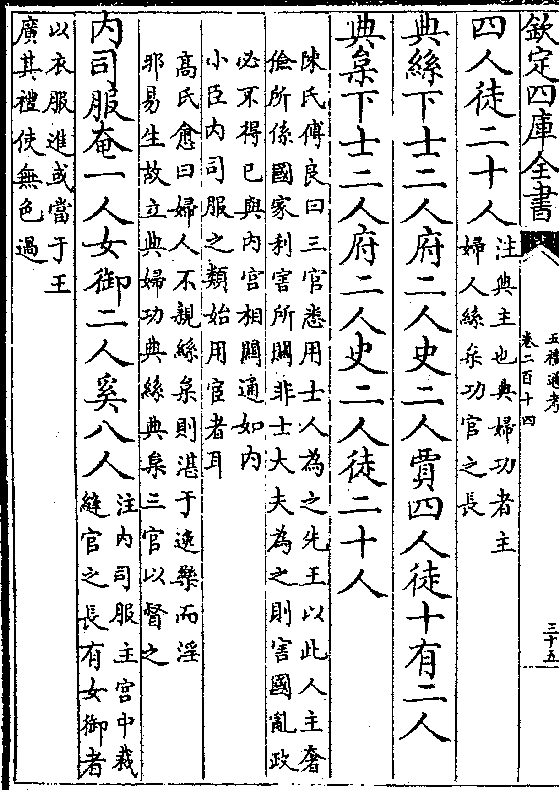 欽定四庫全書
五禮通考
卷二百十四
三十五
四人徒二十人注典主也典婦功者主
婦人絲枲功官之長
典絲下士二人府二人史二人賈四人徒十有二人
典枲下士二人府二人史二人徒二十人
陳氏傅良曰三官悉用士人為之先王以此人主奢
儉所係國家利害所關非士大夫為之則害國亂政
必不得已與内官相關通如内
小臣内司服之類始用宦者耳
髙氏愈曰婦人不親絲枲則湛于逸樂而淫
邪易生故立典婦功典絲典枲三官以督之
内司服奄一人女御二人奚八人注内司服主宫中裁
縫官之長有女御者
以衣服進或當于王
廣其禮使無色過